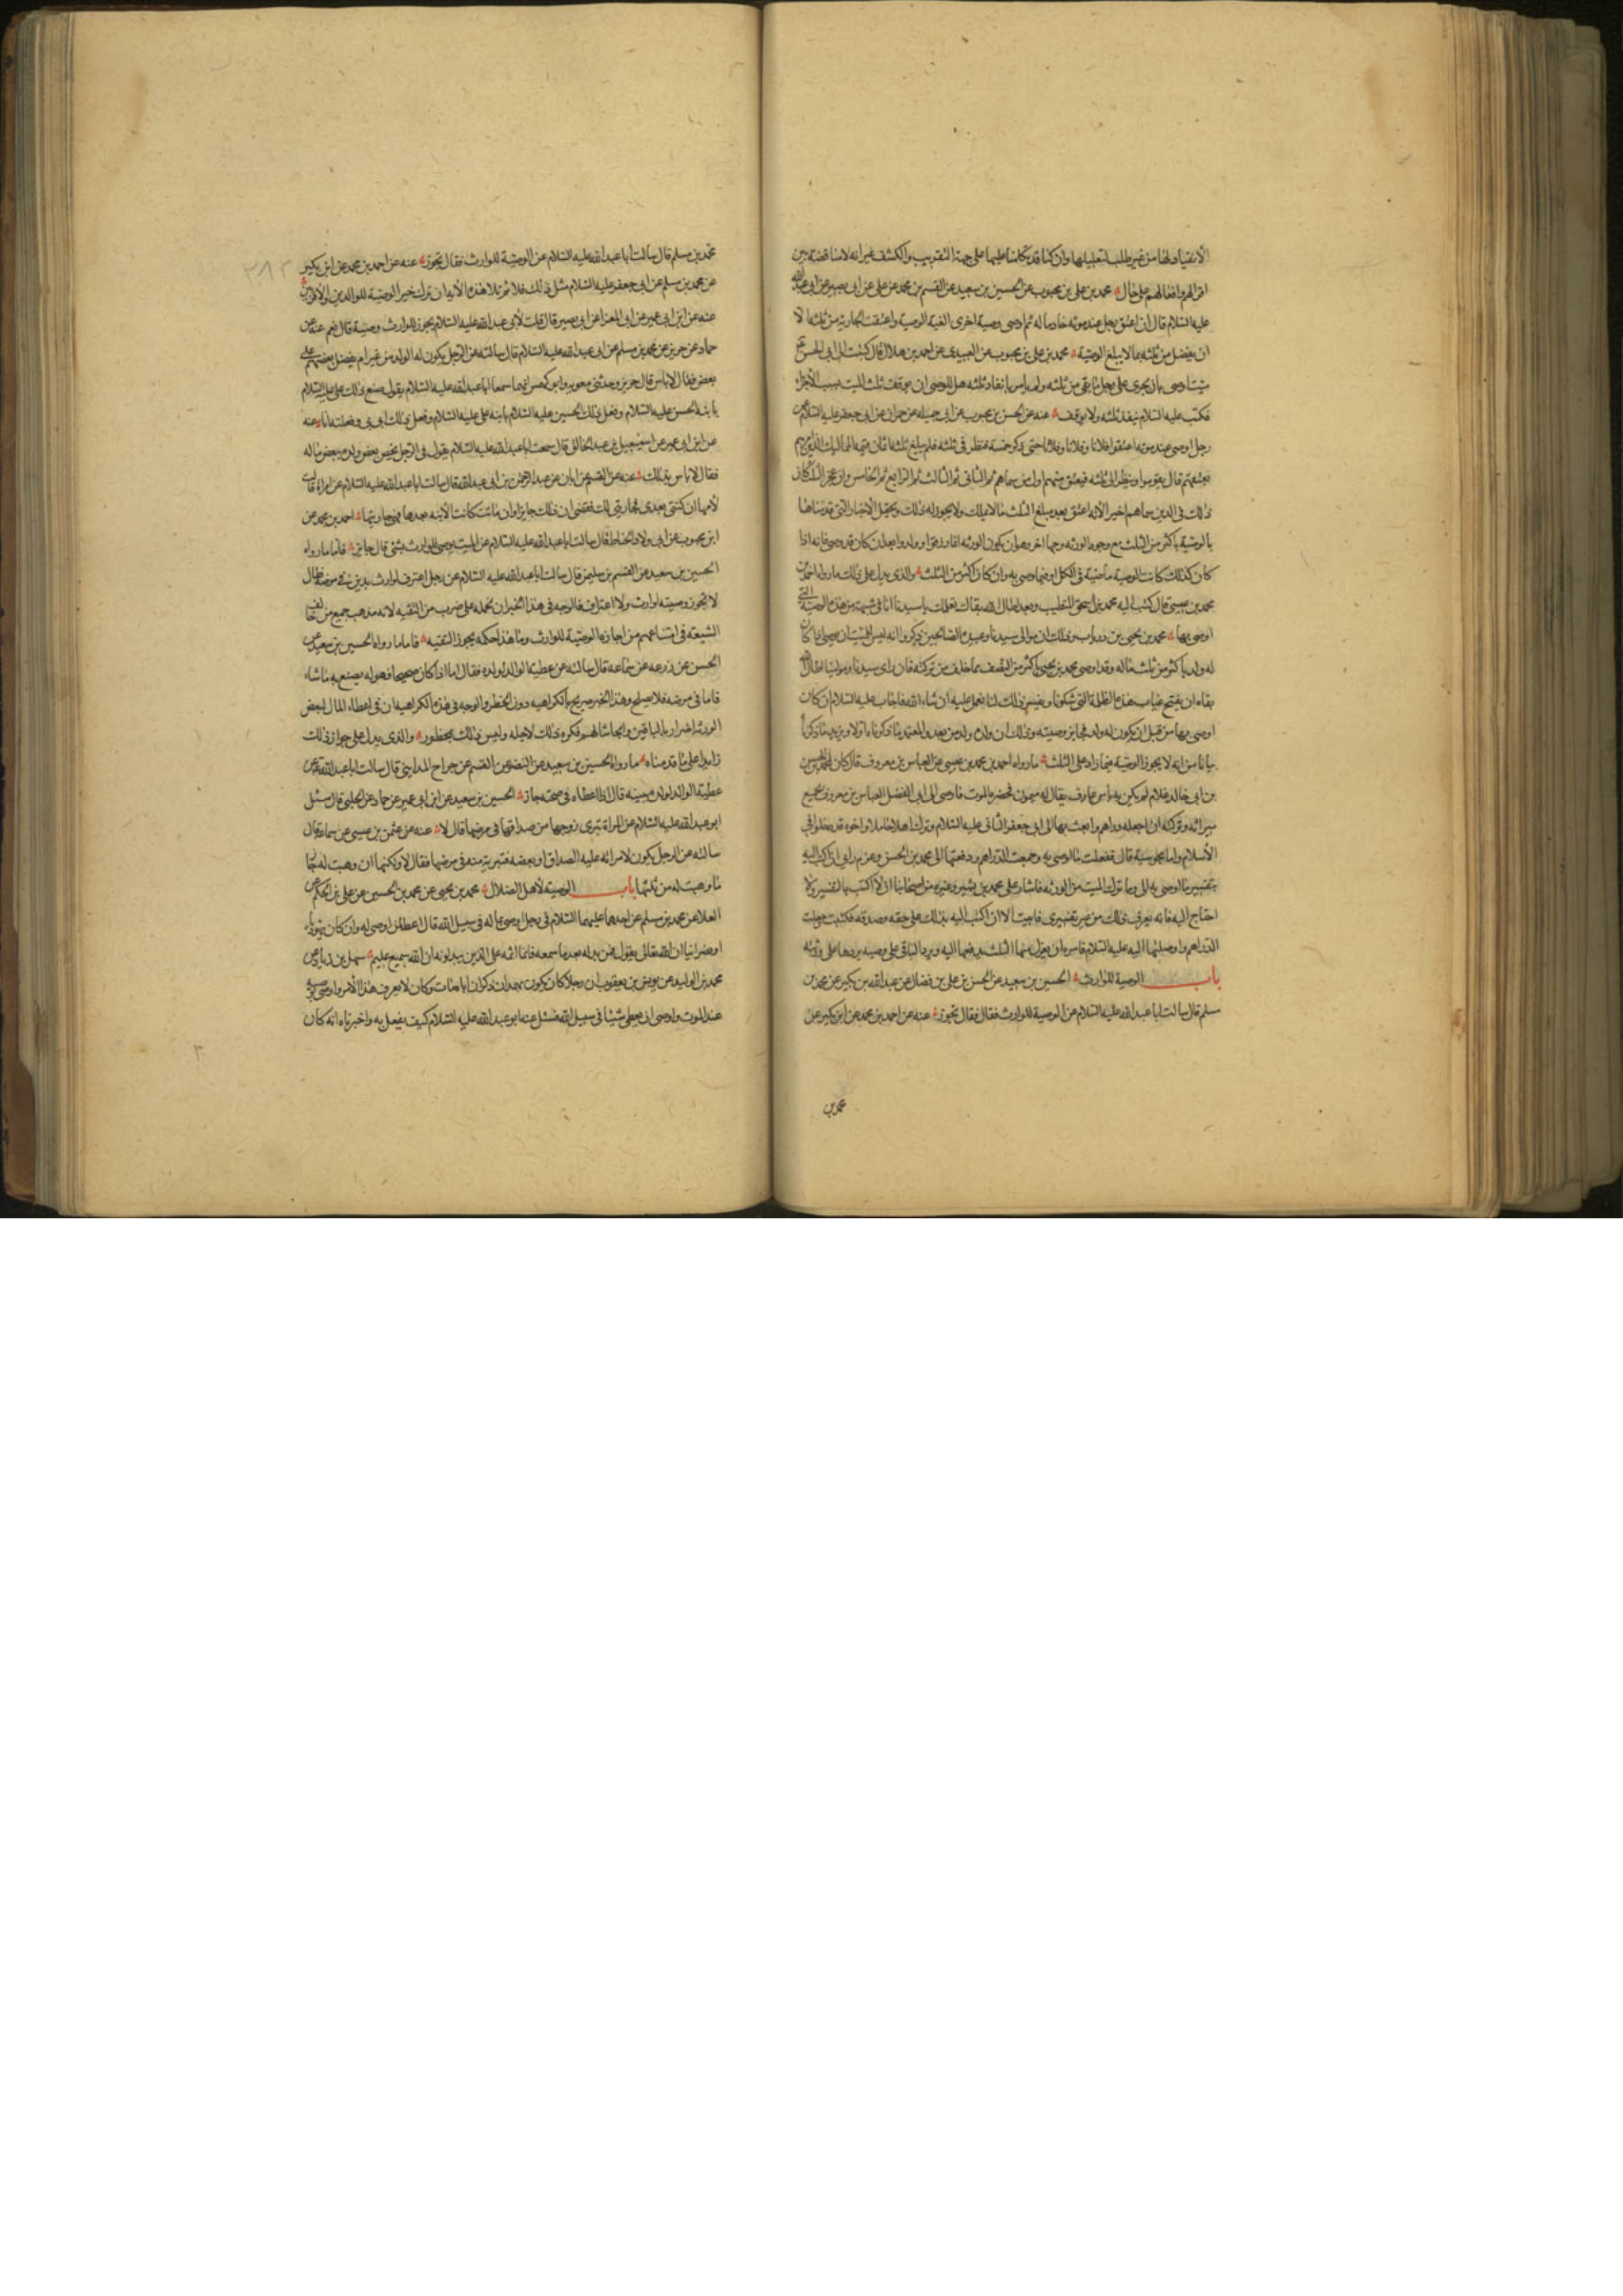 الانقياد لها من غير طلب لتعليلها وان كنا قد تكلمنا عليها على جهة التقريب والكشف غير انه لا مناقضة بين
اقوالهم وافعالهم على حال محمد بن علي بن محبوب عن الحسين بن سعيد عن القسم بن محمد عن علي عن ابي بصير عن ابي عبدالله
عليه السلام قال ان اعتق رجل عند موته خادما له ثم اوصى وصية اخرى الغيت الوصية واعتقت الجارية من ثلثه الا
ان يفضل من ثلثه ما يبلغ الوصية محمد بن علي بن محبوب عن العبيدي عن احمد بن هلال قال كتبت الى ابي الحسن ع
ميت اوصى بان يجرى على رجل ما بقي من ثلثه ولم يامر بانفاذ ثلثه هل للوصي ان يوقف ثلث الميت بسبب الاجراء
فكتب عليه السلام ينفذ ثلثه ولا يوقف عنه عن الحسن بن محبوب عن ابي جميله عن حمران عن ابي جعفر عليه السلام عن
رجل اوصى عند موته اعتقوا فلانا وفلانا وفلانا حتى ذكر خمسة فنظر في ثلثه فلم يبلغ ثلثه اثمان قيمة المماليك الذين
قال يقوموا وينظر الى ثلثه فيعتق منهم اول من سماهم ثم الثاني ثم الثالث ثم الرابع ثم الخامس وان عجز الثلث كان
ذلك في الذين سماهم اخيرا لانه اعتق بعد مبلغ الثلث ما لا يملك ولا يجوز له ذلك ويحتمل الاخبار التي قدمناها
بالوصية باكثر من الثلث مع وجود الورثه وجها اخر وهو ان يكون الورثه
كان كذلك كانت الوصية ماضية في الكل وفيما اوصى به وان كان اكثر من الثلث والذي يدل على ذلك ما رواه احمد بن
محمد بن عيسى قال كتب اليه محمد بن اسحق المتطبب وبعد اطال الله بقاك نعلمك يا سيدنا انا في شبهة من هذه الوصية التي
اوصى بها محمد بن يحيى بن درياب وذلك ان موالي سيدنا وعبيده الصالحين ذكروا انه ليس للميت ان يوصي اذا كان
له ولد باكثر من ثلث ماله وقد اوصى محمد بن يحيى باكثر من النصف مما خلف من تركته فان راى سيدنا ومولانا اطال الله
بقاه ان يفتح غياب هذه الظلمة التي شكونا ويفسر ذلك لنا نعمل عليه ان شاء الله فاجاب عليه السلام ان كان
اوصى بها من قبل ان يكون له ولد فجايز وصيته وذلك ان ولده ولد من بعده
بيانا من انه لا يجوز الوصية فيما زاد على الثلث ما رواه احمد بن محمد بن عيسى عن العباس بن معروف قال كان لمحمد بن الحسن
بن ابي خالد غلام لم يكن به باس عارف يقال له ميمون فحضره الموت فاوصى الى ابي الفضل العباس بن معروف بجميع
ميراثه وتركته ان اجعله دراهم وابعث بها الى ابي جعفر الثاني عليه السلام وترك اهلا حاملا واخوة قد دخلوا في
الاسلام واما مجوسية قال ففعلت ما اوصى به وجمعت الدراهم ودفعتها الى محمد بن الحسن وعزم رايي ان اكتب اليه
بتفسير ما اوصى به الي وما ترك الميت من الورثه فاشار علي محمد بن بشير وغيره من اصحابنا ان لا اكتب بالتفسير ولا
احتاج اليه فانه يعرف ذلك من غير تفسيري فابيت الا ان اكتب اليه بذلك على حقه وصدقه فكتبت وحصلت
الدراهم واوصلتها اليه عليه السلام فامره ان يعزل منها الثلث يدفعها اليه ويرد الباقي على وصيه يردها على ورثته
باب الوصية للوارث الحسين بن سعيد عن الحسن بن علي بن فضال عن عبدالله بن بكير عن محمد بن
مسلم قال سالت ابا عبدالله عليه السلام عن الوصية للوارث فقال فقال تجوز عنه عن احمد بن محمد عن ابن بكير عن
محمد بن
٢٨٢
محمد بن مسلم قال سالت ابا عبدالله عليه السلام عن الوصية للوارث فقال تجوز عنه عن احمد بن محمد عن ابن بكير
عن محمد بن مسلم عن ابي جعفر عليه السلام مثل ذلك قال ثم تلا هذه الاية ان ترك خيرا الوصية للوالدين والاقربين
عنه عن ابن ابي عمير عن ابي المعزا عن ابي بصير قال قلت لابي عبدالله عليه السلام يجوز للوارث وصية قال نعم عنه عن
حماد عن حريز عن محمد بن مسلم عن ابي عبدالله عليه السلام قال سالته عن الرجل يكون له الولد من غير ام يفضل بعضهم على
بعض فقال لا باس قال حريز وحدثني معويه وابو كهمس انهما سمعا ابا عبدالله عليه السلام يقول صنع ذلك علي عليه السلام
بابنه الحسن عليه السلام وفعل ذلك الحسين عليه السلام بابنه علي عليه السلام وفعل ذلك ابي بي وفعلته انا عنه
عن ابن ابي عمير عن اسمعيل بن عبد الخالق قال سمعت ابا عبدالله عليه السلام يقول في الرجل يخص بعض ولده ببعض ماله
فقال لا باس بذلك عنه عن القسم عن ابان عن عبد الرحمن بن ابي عبدالله قال سالت ابا عبدالله عليه السلام عن امراة قالت
لامها ان كنتي بعدي فجاريتي لك فقضى ان ذلك جايز وان ماتت كانت الابنه بعدها فهي جاريتها احمد بن محمد عن
ابن محبوب عن ابي ولاد الحناط قال سالت ابا عبدالله عليه السلام عن الميت يوصي للوارث بشئ قال جايز فاما ما رواه
الحسين بن سعيد عن القسم بن سليمن قال سالت ابا عبدالله عليه السلام عن رجل اعترف لوارث بدين في مرضه فقال
لا تجوز وصيته لوارث ولا اعتراف فالوجه في هذا الخبر ان نحمله على ضرب من التقيه لانه مذهب جميع من خالف
الشيعة في امتناعهم من اجازة الوصية للوارث وما هذا حكمه يجوز التقيه فاما ما رواه الحسين بن سعيد عن
الحسن عن زرعه عن سماعه قال سالته عن عطية الوالد لولده فقال اما اذا كان صحيحا فهو له يصنع به ما شاء
فاما في مرضه فلا يصلح وهذا الخبر صريح بالكراهيه دون الحظر والوجه في هذه الكراهيه ان في اعطاء المال لبعض
الورثه اضرار بالباقين وايحاشا لهم فكره ذلك لاجله وليس ذلك بمحظور والذي يدل على جواز ذلك
زايدا على ما قدمناه ما رواه الحسين بن سعيد عن النضر عن القسم عن جراح المدايني قال سالت ابا عبدالله ع عن
عطية الوالد لولده ببينه قال اذا اعطاه في صحته جاز الحسين بن سعيد عن ابن ابي عمير عن حماد عن الحلبي قال سئل
ابو عبدالله عليه السلام عن المراة تبرى زوجها من صداقها في مرضها قال لا عنه عن عثمن بن عيسى عن سماعه قال
سالته عن الرجل يكون لامراته عليه الصداق او بعضه فتبريه منه في مرضها فقال لا ولكنها ان وهبت له جاز
ما وهبت له من ثلثها باب الوصية لاهل الضلال محمد بن يحيى عن محمد بن الحسين عن علي بن الحكم عن
العلا عن محمد بن مسلم عن احدهما عليهما السلام في رجل اوصى بماله في سبيل الله قال اعط لمن اوصى له وان كان يهوديا
او نصرانيا ان الله تعالى يقول فمن بدله بعدما سمعه فانما اثمه على الذين يبدلونه ان الله سميع عليم سهل بن زياد عن
محمد بن الوليد عن يونس بن يعقوب ان رجلا كان يكون بهمدان ذكر ان اباه مات وكان لا يعرف هذا الامر واوصى بوصيه
عند الموت واوصى ان يعطى شيئا في سبيل الله فسئل عنه ابو عبدالله عليه السلام كيف يفعل به واخبرناه انه كان